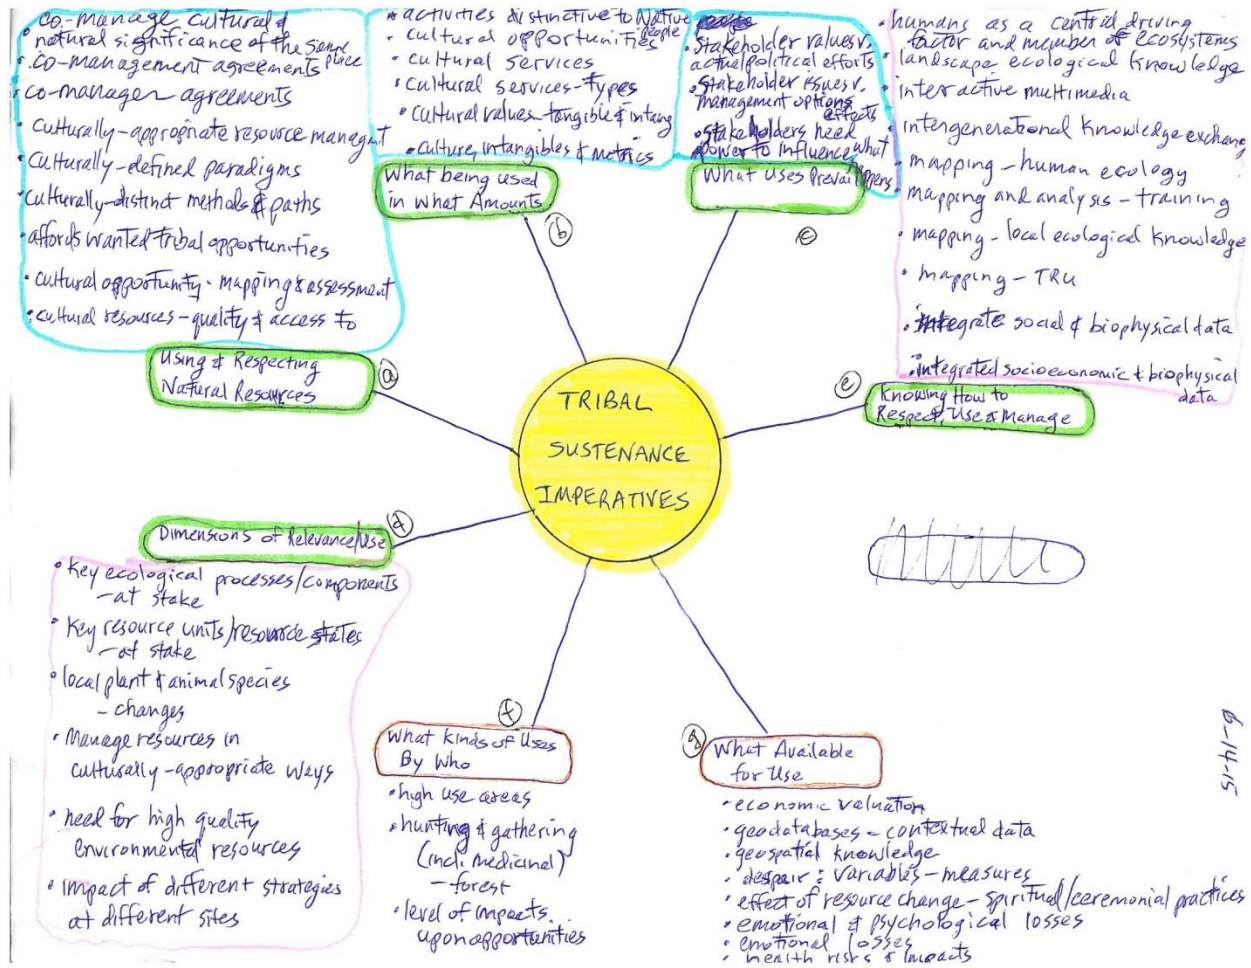 co-manage cultural &
natural significance of the same
place
• co-management agreements
co-manager agreements
• culturally-appropriate resource managmt
• culturally-defined paradigms
• culturally-distinct methods & paths
• affords wanted tribal opportunities
• cultural opportunity - mapping & assessment
• cultural resources - quality & access to
Using & Respecting
Natural Resources
a
• activities distinctive to Native
people
• cultural opportunities
• cultural services
• cultural services-types
• cultural values-tangible & intang
• culture, intangibles & metrics
What being used
in what Amounts
b
• stakeholder values v.
actual political efforts
• stakeholder issues v.
management options
effects
• stakeholders need
power to influence what
happens
What Uses Prevail
• humans as a central driving
factor and member of ecosystems
landscape ecological knowledge
• interactive multimedia
intergenerational knowledge-exchang
• mapping - human ecology
• mapping and analysis - training
• mapping - local ecological knowledge
• mapping - TRU
• integrate social & biophysical data
• integrated socioeconomic & biophysical
data
e
Knowing How to
Respect, Use & Manage
TRIBAL
SUSTENANCE
IMPERATIVES
Dimensions of Relevance/Use
d
• Key ecological processes/components
- at stake
• Key resource units/resource states
- at stake
• local plant & animal species
- changes
• Manage resources in
culturally-appropriate ways
• need for high quality
environmental resources
• impact of different strategies
at different sites
f
What Kinds of Uses
By Who
• high use areas
• hunting & gathering
(incl. medicinal)
- forest
• level of impacts
upon opportunities
g
What Available
for Use
• economic valuation
• geodatabases - contextual data
• geospatial knowledge
• despair : variables - measures
• effect of resource change - spiritual/ceremonial practices
• emotional & psychological losses
• emotional losses
• health risks & impacts
6-14-15